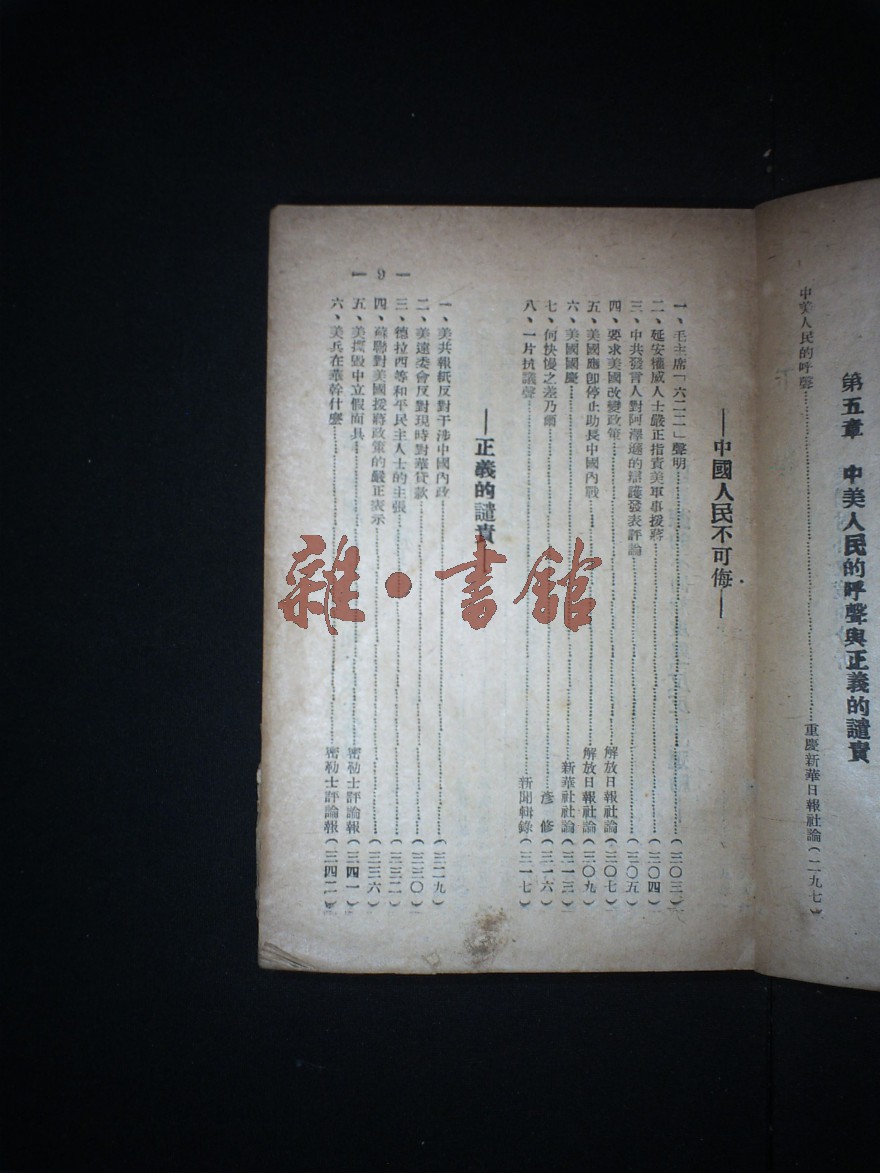 第五章　中美人民的呼聲與正義的譴責
中美人民的呼聲……重慶新華日報社論（二九七）
—中國人民不可侮—
一、毛主席「六二二」聲明……（三〇三）
二、延安權威人士嚴正指責美軍事援蔣……（三〇四）
三、中共發言人對阿澤遜的辯護發表評論……（三〇五）
四、要求美國改變政策……解放日報社論（三〇七）
五、美國應卽停止助長中國內戰……解放日報社論（三〇九）
六、美國國慶……新華社社論（三一三）
七、何快慢之差乃爾……彥修（三一六）
八、一片抗議聲……新聞輯錄（三一七）
—正義的譴責—
一、美共報紙反對干涉中國內政……（三二九）
二、美遠委會反對現時對華貸款……（三三〇）
三、德拉西等和平民主人士的主張……（三三二）
四、蘇聯對美國援蔣政策的嚴正表示……（三三六）
五、美撕毀中立假面具……密勒士評論報（三四一）
六、美兵在華幹什麼……密勒士評論報（三四二）
— 9 —
雜·書館